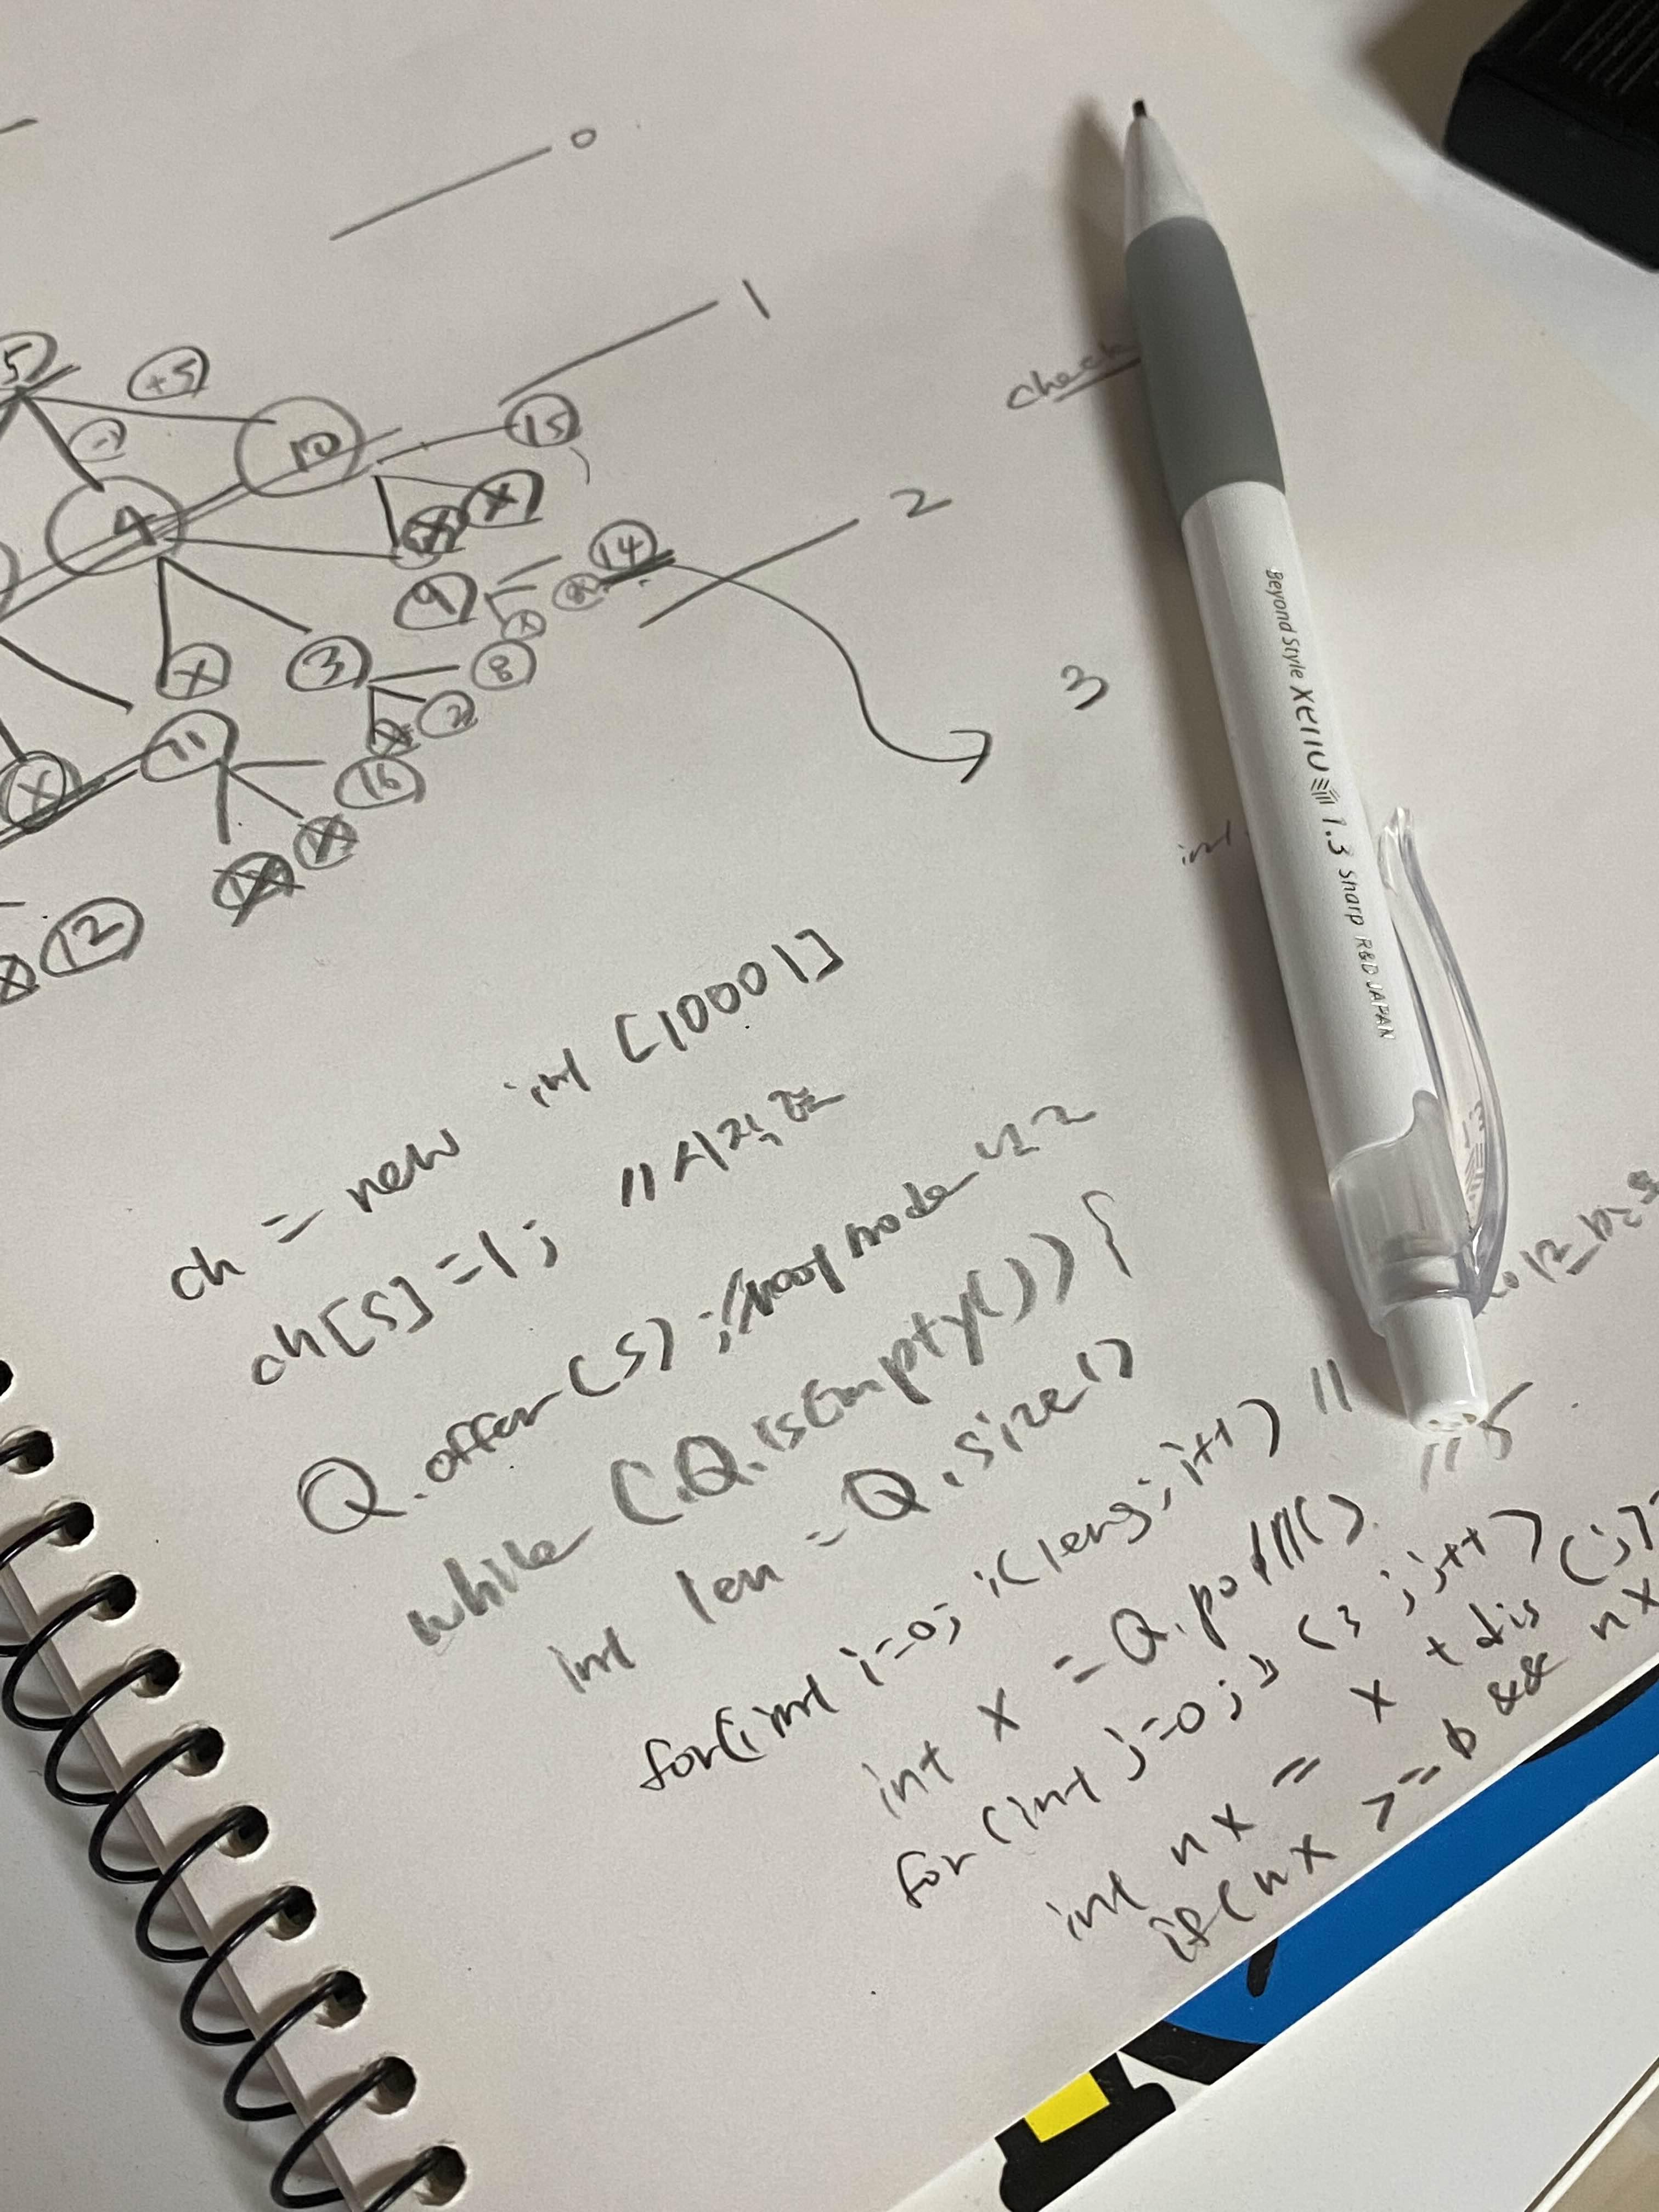 0
1
5
+5
-1
10
15
check
X
X
2
4
14
9
X
8
X
3
3
2
X
11
16
X
X
12
X
int
ch = new int [10001]
ch[S] = 1; //시작점
Q.offer(S); //root node
while (!Q.isEmpty()) {
int len = Q.size()
for(int i=0; i<len; i++) //
int x = Q.poll()
for (int j=0; j<3; j++)
int nx = x + dis (j)
if (nx >= 0 && nx
Beyond Style XENO 1.3 Sharp R&D JAPAN